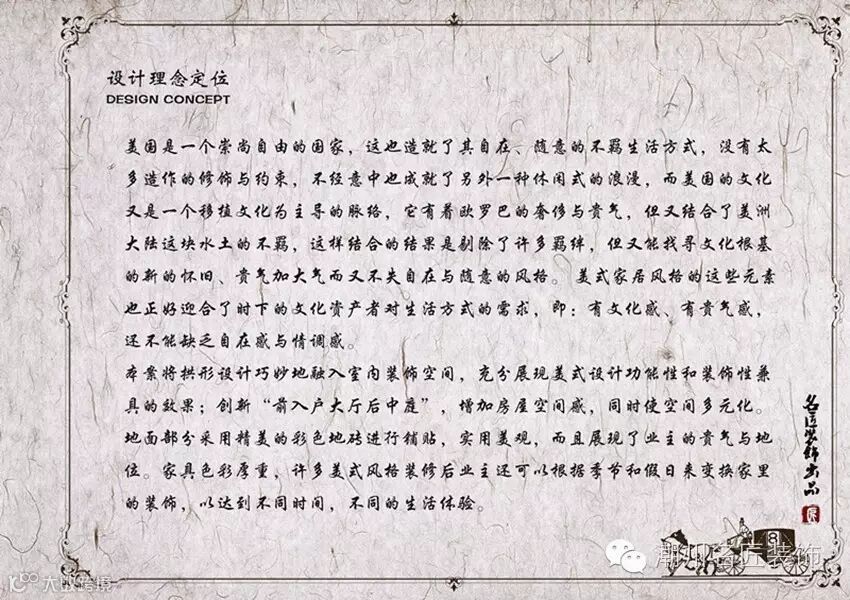 设计理念定位
DESIGN CONCEPT
美国是一个崇尚自由的国家，这也造就了其自在、随意的不羁生活方式，没有太
多造作的修饰与约束，不经意中也成就了另外一种休闲式的浪漫，而美国的文化
又是一个移植文化为主导的脉络，它有着欧罗巴的奢侈与贵气，但又结合了美洲
大陆这块水土的不羁，这样结合的结果是剔除了许多羁绊，但又能找寻文化根基
的新的怀旧、贵气加大气而又不失自在与随意的风格。美式家居风格的这些元素
也正好迎合了时下的文化资产者对生活方式的需求，即：有文化感、有贵气感，
还不能缺乏自在感与情调感。
本案将拱形设计巧妙地融入室内装饰空间，充分展现美式设计功能性和装饰性兼
具的效果；创新“前入户大厅后中庭”，增加房屋空间感，同时使空间多元化。
地面部分采用精美的彩色地砖进行铺贴，实用美观，而且展现了业主的贵气与地
位。家具色彩厚重，许多美式风格装修后业主还可以根据季节和假日来变换家里
的装饰，以达到不同时间，不同的生活体验。
名匠装饰出品
8
潮州名匠装饰
大数跨境